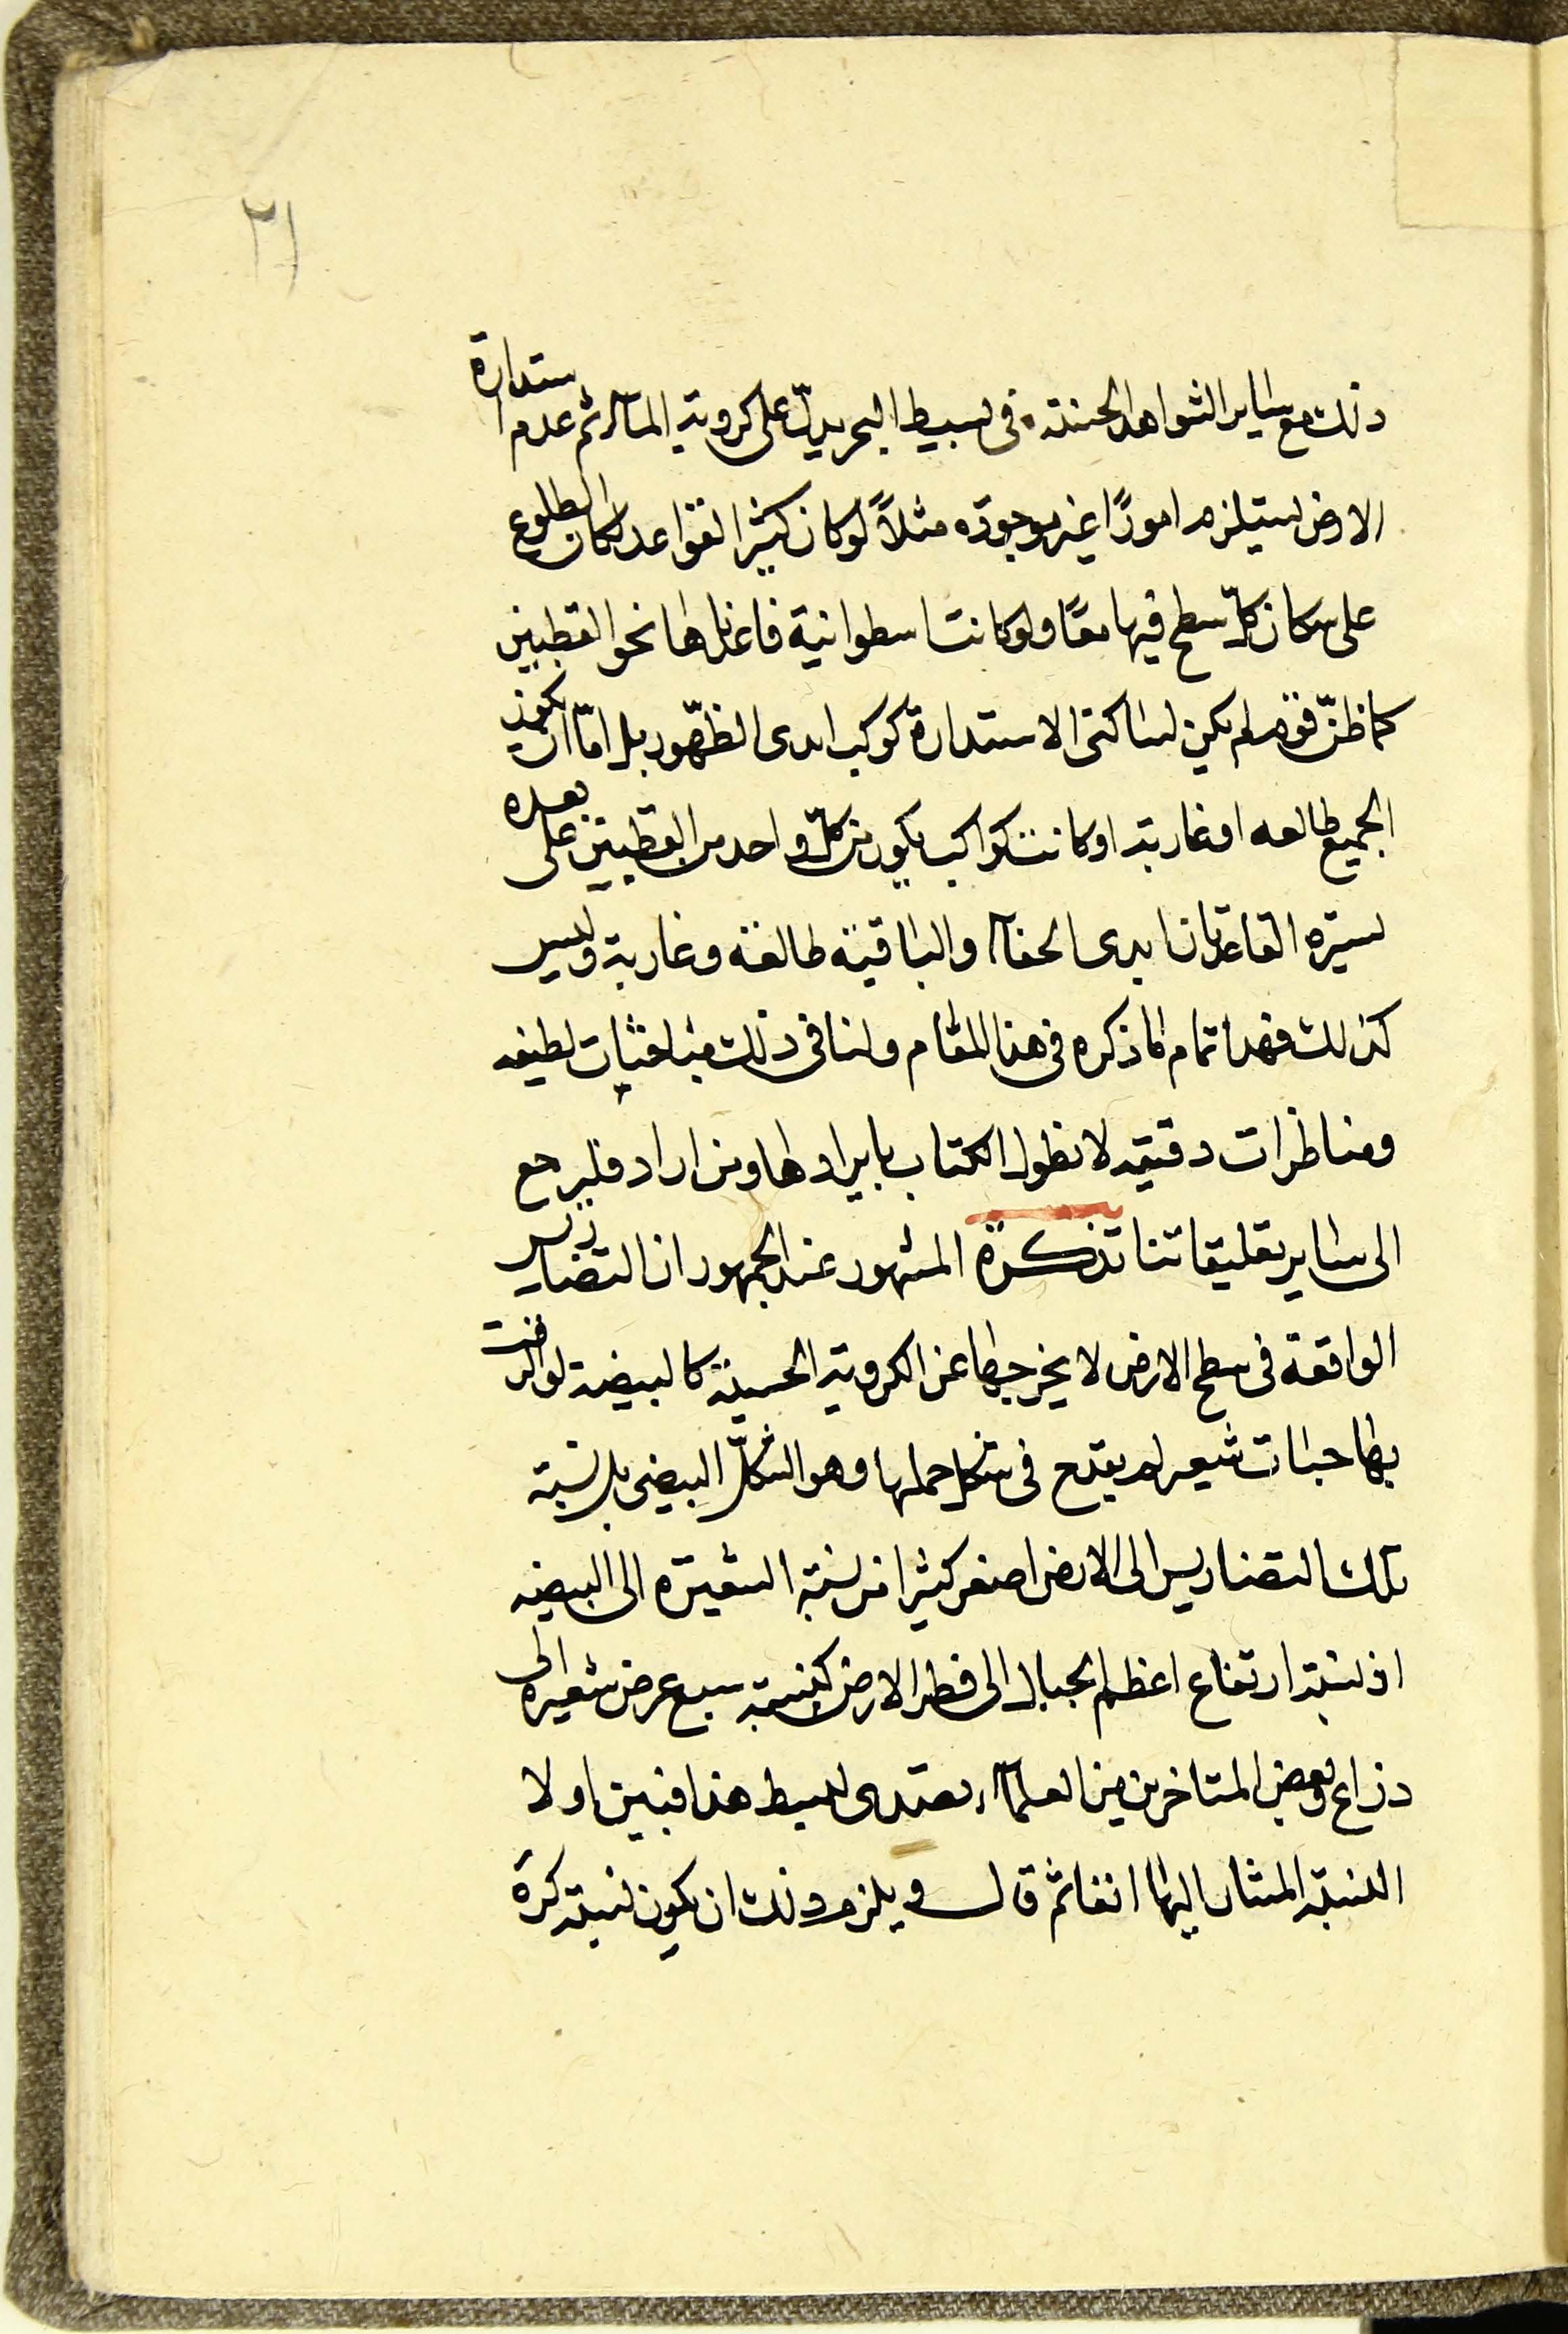 ٢١
ذلك مع ساير الشواهد الحسنة فى بسيط البحر يدلّ على كروية الماء ثم عدم استدارة
الارض يستلزم امورًا غير موجوده مثلاً لو كان كثير القواعد لكان الطلوع
على سكان كلّ سطح فيها معًا ولو كانت اسطوانية قاعدتاها نحو القطبين
كما ظنّ قوم لم يكن لساكنى الاستدارة كوكب ابدى الظهور بل امّا ان يكون
الجميع طالعه او غاربة او كانت كواكب يكون من كلّ واحد من القطبين على بعد
يستره القاعدتان ابدى الخفاء والباقية طالعة وغاربة وليس
كذلك فهذا تمام ما ذكره فى هذا المقام ولنا فى ذلك مباحثات لطيفه
ومناظرات دقيقه لا نطول الكتاب بايرادها ومن اراد فليرجع
الى ساير تعليقاتنا تذكرة المشهور عند الجمهور ان التضاريس
الواقعة فى سطح الارض لا يخرجها عن الكروية الحسية كالبيضة لو الزقت
بها حبات شعير لم يقدح فى شكل جملها وهو الشكلّ البيضى بل نسبة
تلك التضاريس الى الارض اصغر كثيرا من نسبة الشعيره الى البيضه
اذ نسبة ارتفاع اعظم الجبال الى قطر الارض كنسبة سبع عرض شعيره الى
ذراع وبعض المتاخرين من العلماء تصدى لبسط هذا فبين اولا
النسبة المشار اليها انفا ثم قال ويلزم ذلك ان يكون نسبة كرة